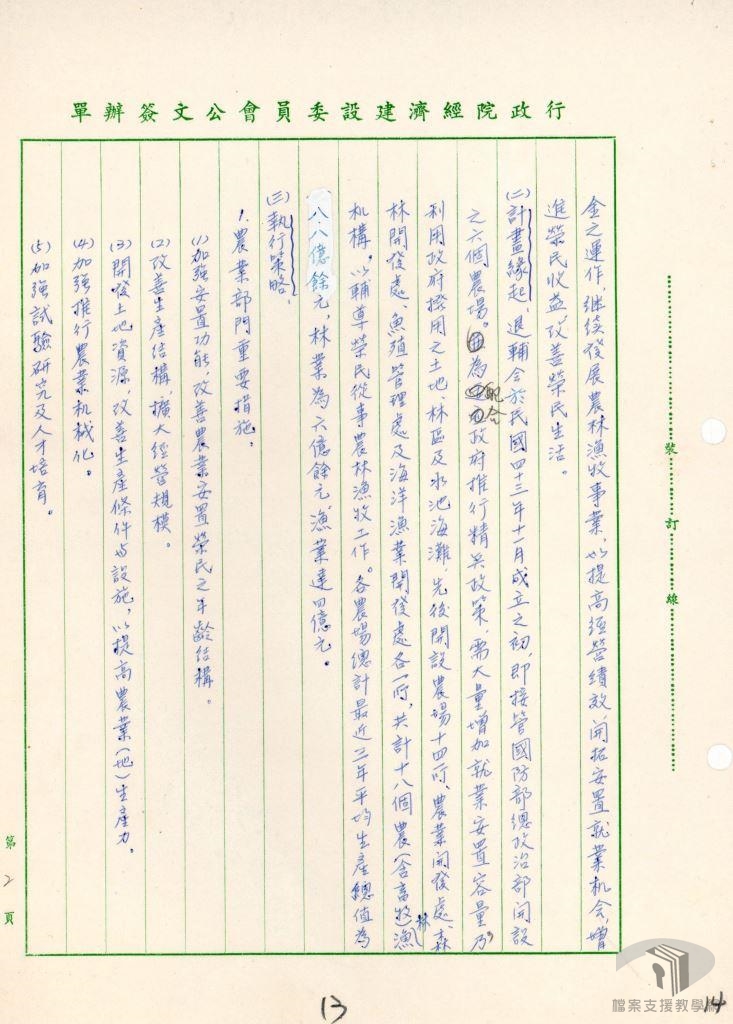 行政院經濟建設委員會公文簽辦單
金之運作,繼续發展農林漁牧事業,以提高經營績效,開拓安置就業机会,增
進榮民收益,改善榮民生活。
(二)計畫缘起,退輔会於民國四十三年十一月成立之初,即接管國防部總政治部開設
之六個農場。為配合政府推行精兵政策,需大量增加就業安置容量,乃
利用政府撥用之土地、林區及水池海灘,先後開設農場十四所、農業開發處、森
林開發處、魚殖管理處及海洋漁業開發處各一所,共計十八個農(含畜牧)林漁
机構。以輔導榮民從事農林漁牧工作。各農場總計最近三年平均生產總值為
八.八億餘元,林業為六億餘元,漁業達四億元。
(三)執行策略,
1.農業部門重要措施。
(1)加強安置功能,改善農業安置榮民之年齡結構。
(2)改善生產结構,擴大經營規模。
(3)開發土地資源,改善生產條件与設施,以提高農業(地)生產力。
(4)加強推行農業机械化。
(5)加強試驗研究及人才培育。
裝訂線
第2頁
13
14
檔案支援教學網